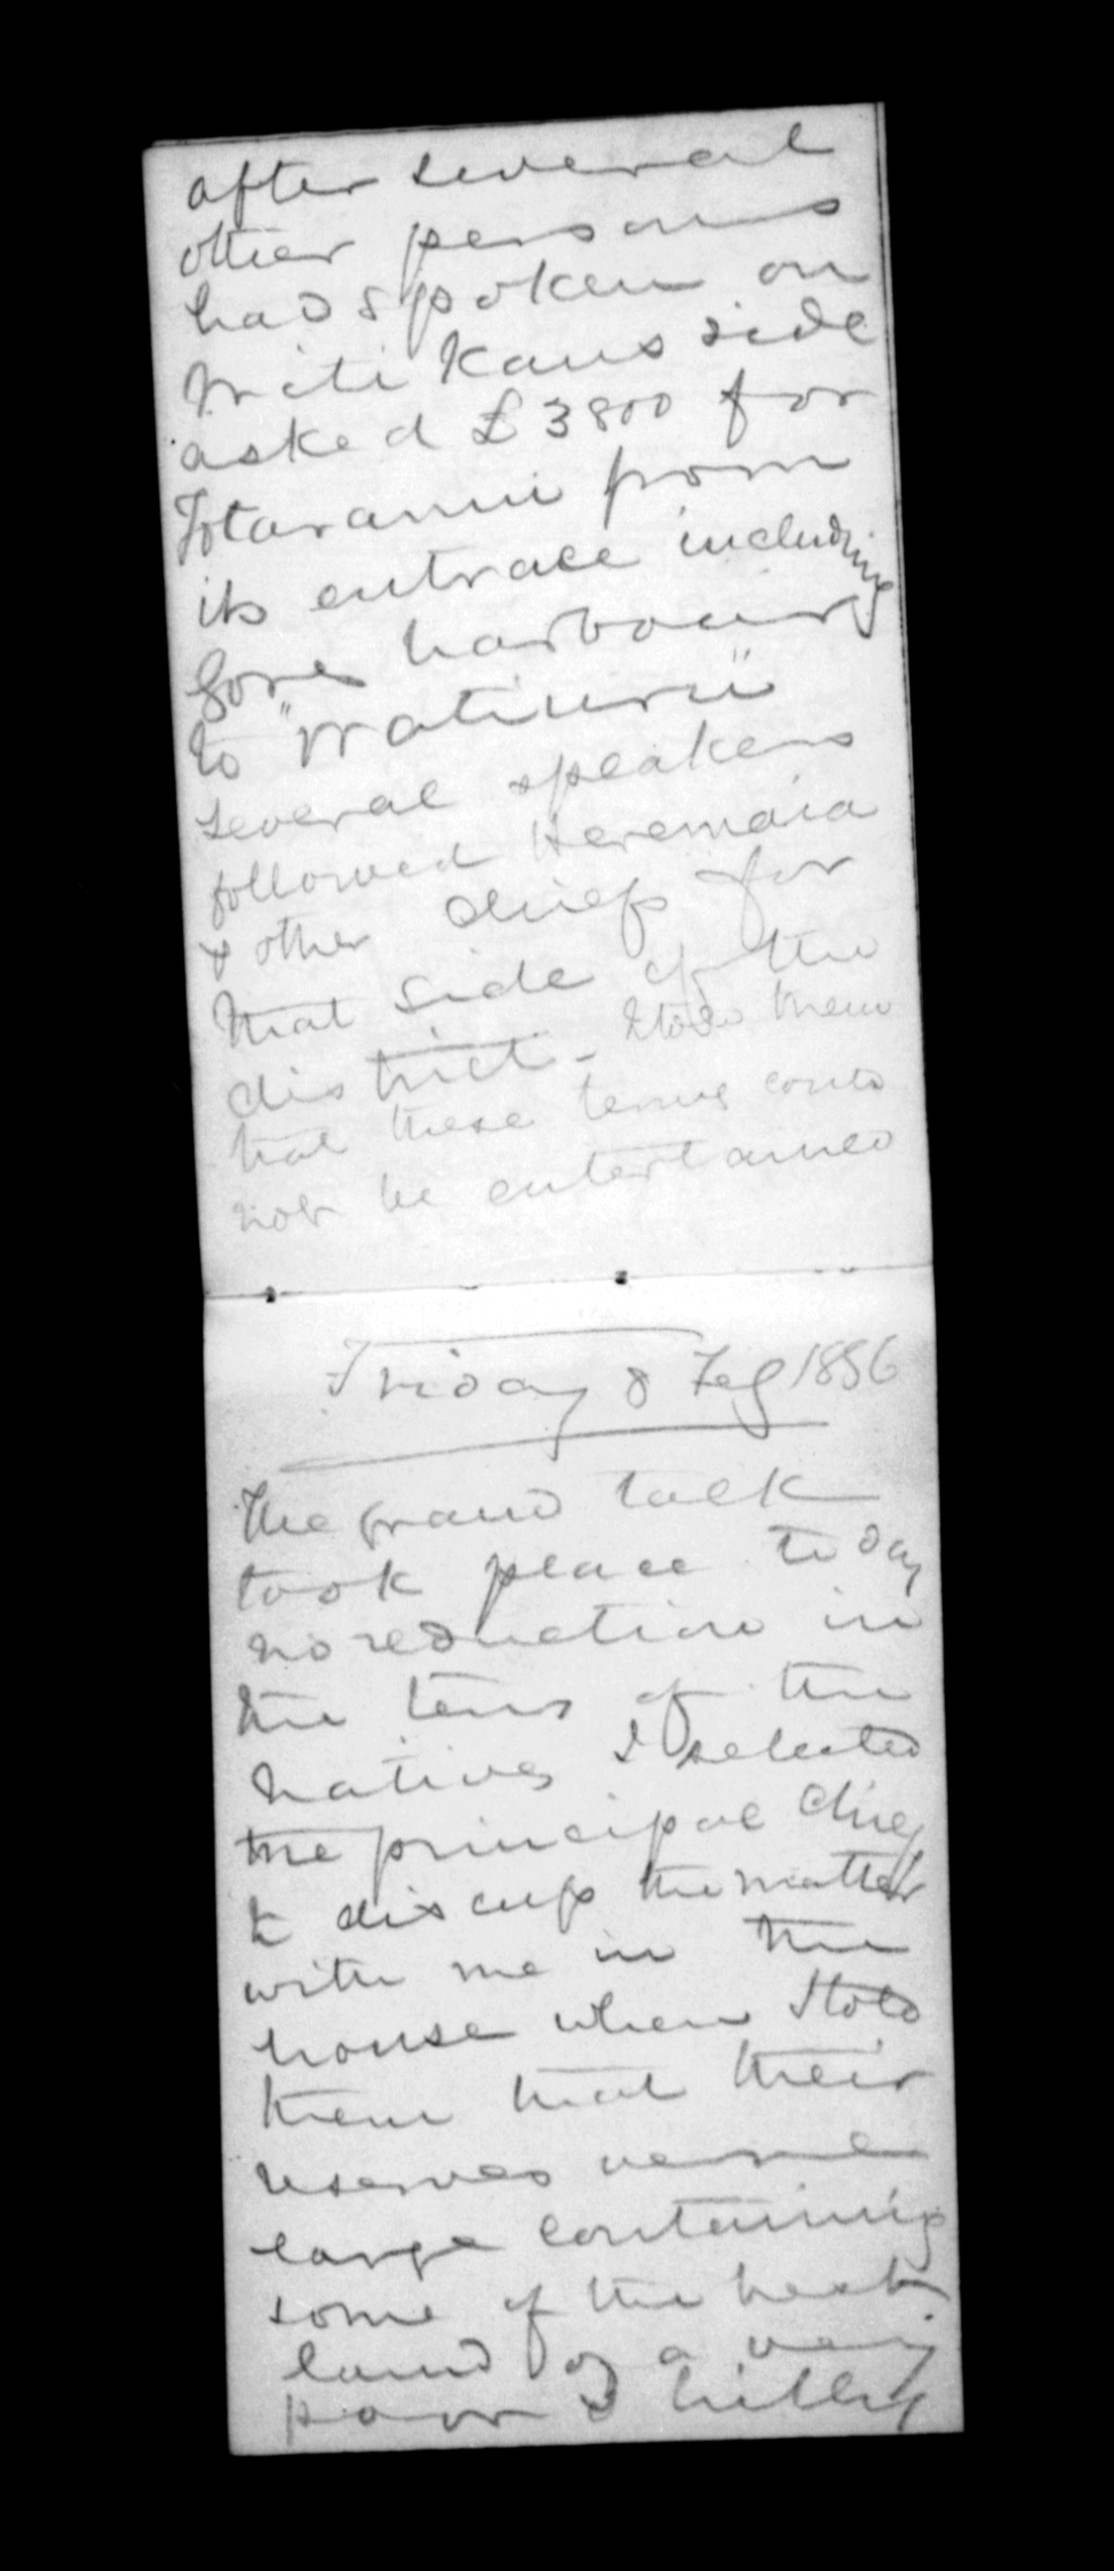 after several
other persons
had spoken on
Miti Kaus side
asked £3800 for
Totaranui from
its entrace including
Gores harbour
to "Watiura"
several speakers
followed Heremaia
& other chiefs for
that side of the
district - I told them
that these terms could
not be entertained
Friday 8 Feb 1856
The grand talk
took place today
no reduction in
the terms of the
natives I selected
the principal chiefs
to discuss the matter
with me in the
house when I told
them that their
reserves were
large containing
some of the best
land of a very
poor & hilly